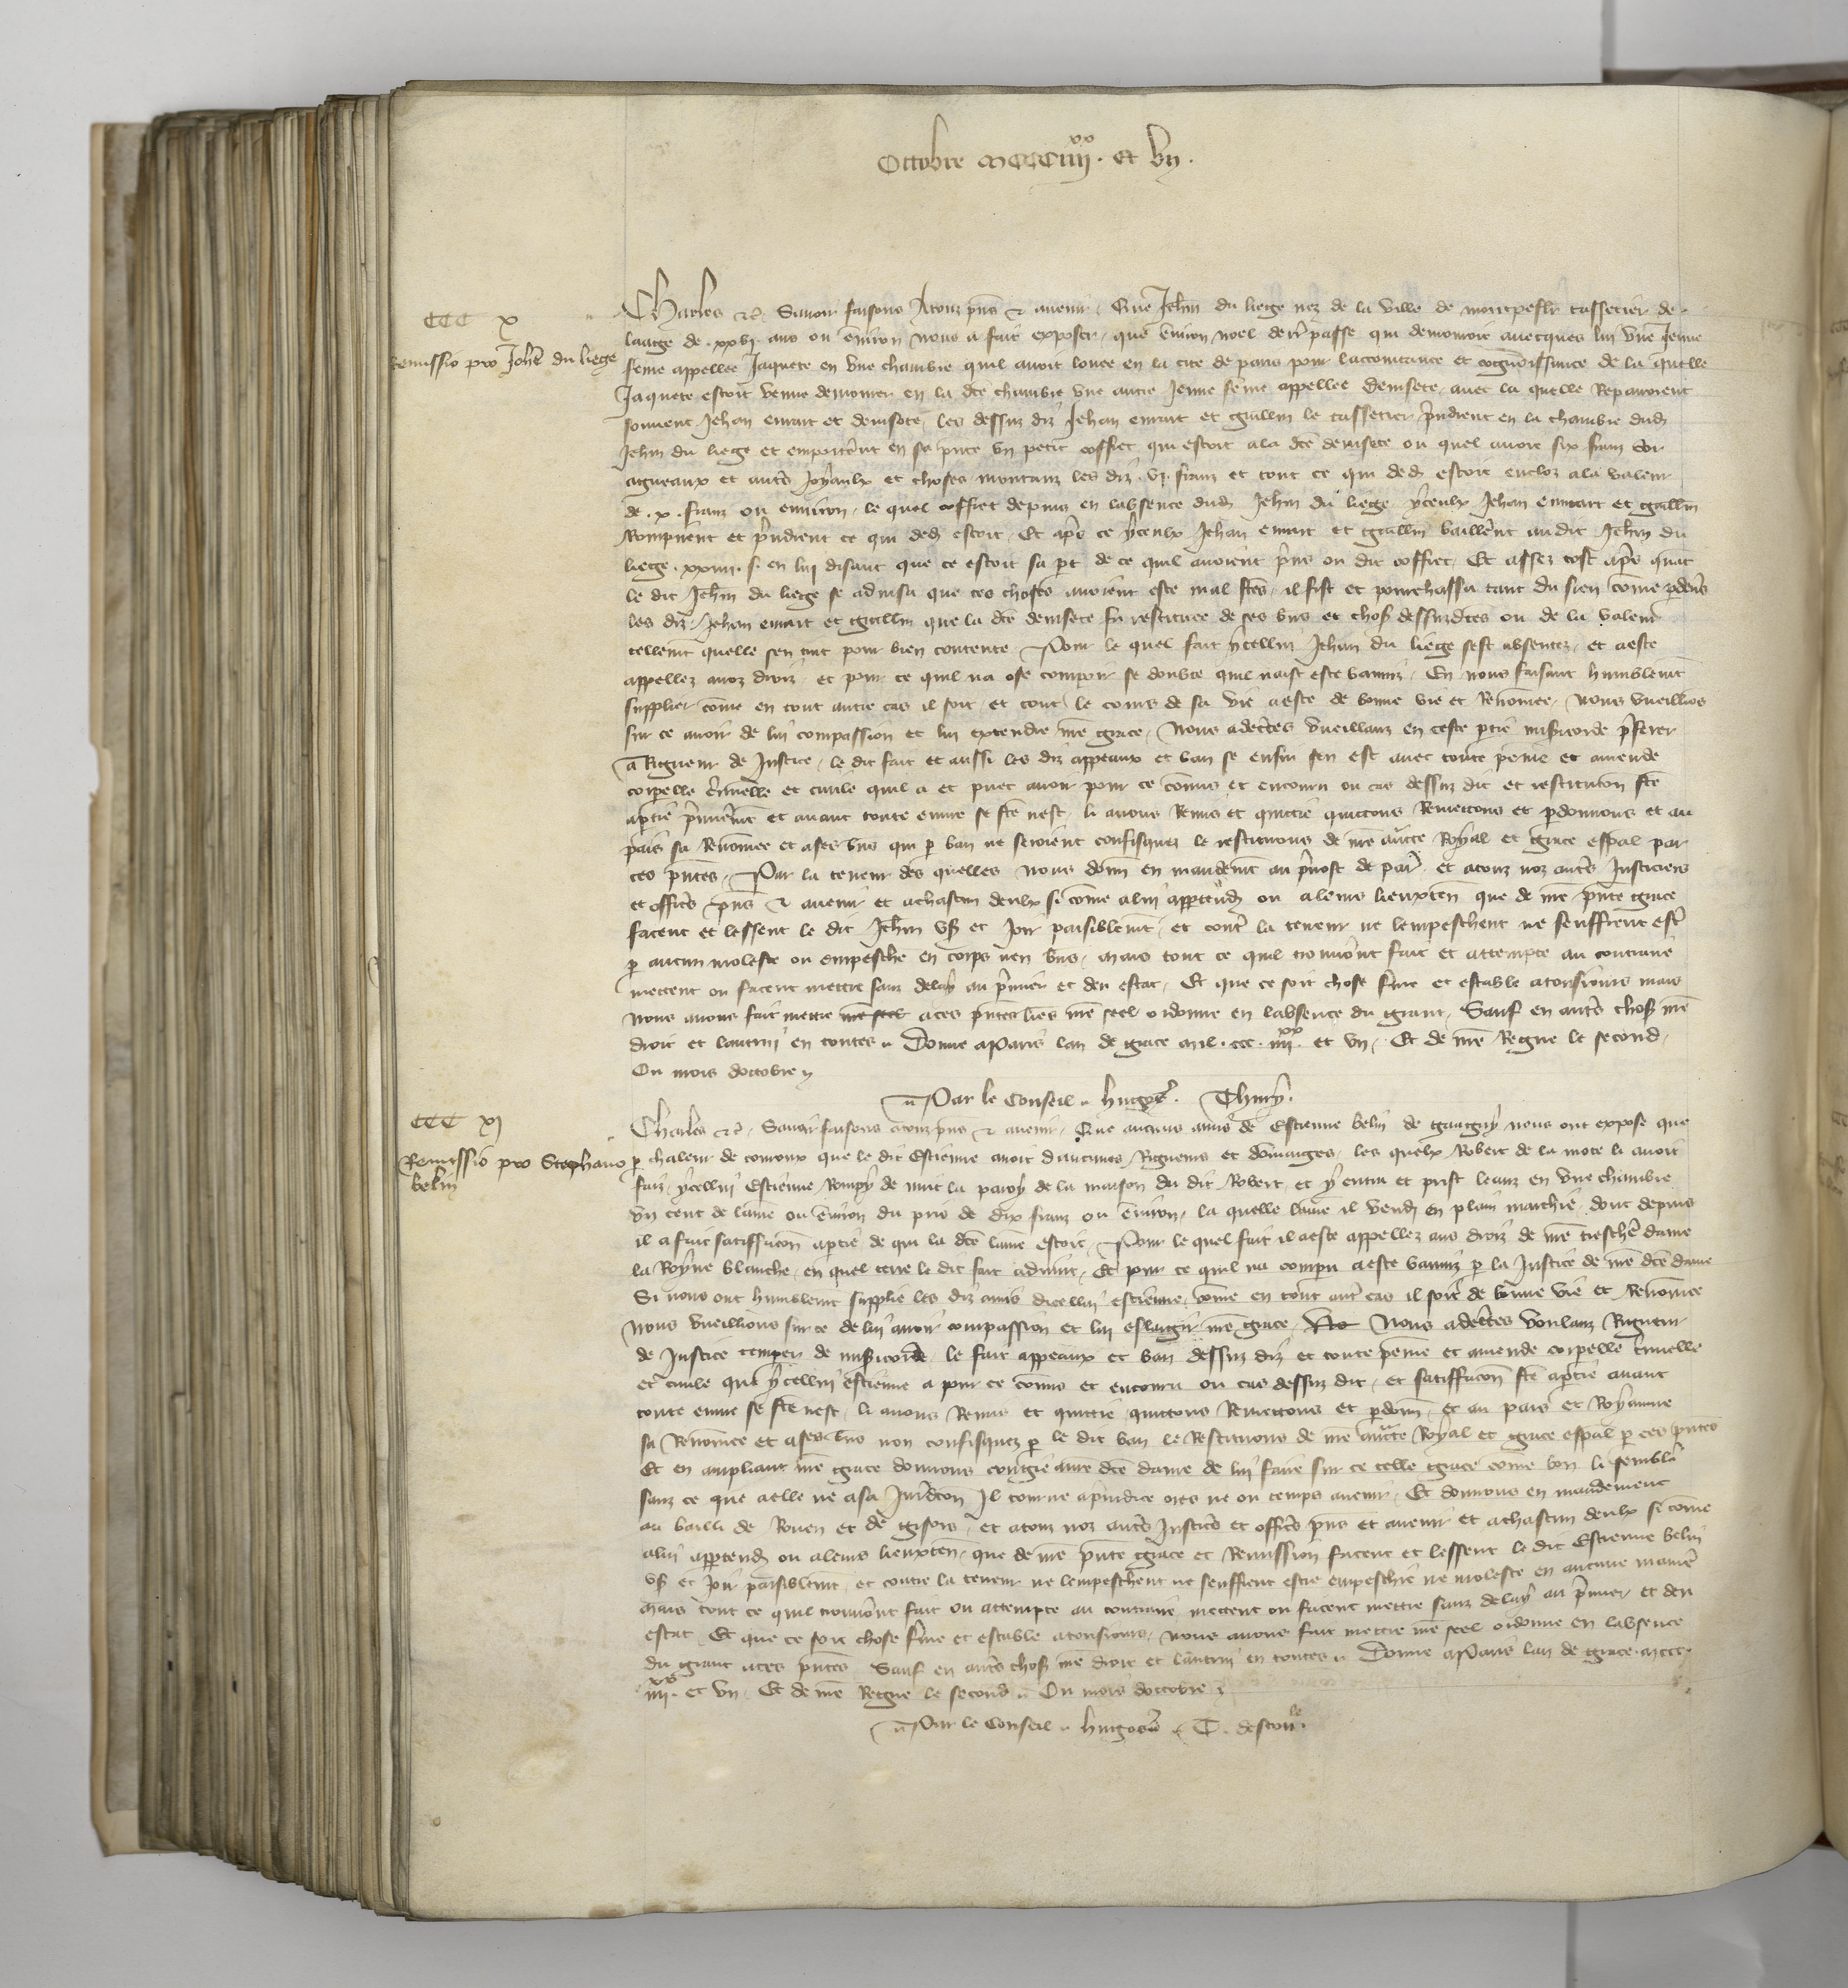 Octobre mccciiii xx. et un.
CCC X
Remissio pro Johē du liege
Charles etc. Savoir faisons a touz pns et avenir. Que Jehan du liege nez de la ville de montpeslr tassetier de
laage de .xxvi. ans ou environ nous a fait exposer, que environ noel derr passe qui demouroit avecques lui une Jeune
feme appellee Jaquete en une chambre quil avoit louee en la cite de paris pour lacointance et cognoissance de la quelle
Jaquete estoit venue demourer en la dce chambre une autre Jeune feme appellee denisete, avec la quelle Repairoient
souvent Jehan emart et denisete, les dessuz diz Jehan emart et guillm le tassetier prindrent en la chambre dud
Jehan du liege et emporterent en sa pnce un petit coffret qui estoit a la dce denisete ou quel avoit six frans dor
agneaux et autres Joyaulx et choses montanz les diz .vi. frans et tout ce qui ded estoit encloz a la valeur
de .x. frans ou environ, le quel coffret depuis en labsence dud Jehan du liege yceulx Jehan emart et guillm
Rompirent et prindrent ce qui ded estoit, Et apres ce yceulx Jehan emart et guillm baillerent au dit Jehan du
liege .xxiiii. s. en lui disant que ce estoit sa part de ce quil avoient prins ou dit coffret, Et assez tost apres quant
le dit Jehan du liege se advisa que ces choses avoient este mal fces, il fist et pourchassa tant du sien come par devers
les diz Jehan emart et guillm que la dce denisete fu restituee de ses biens et chos dessuzdces ou de la valeur
tellement quelle sen tint pour bien contente. Pour le quel fait ycellui Jehan du liege sest absentez, et a este
appellez a noz droiz, et pour ce quil na ose comparoir se doubte quil nait este banniz, En nous faisant humblement
supplier come en tout autre cas il soit et tout le cours de sa vie a este de bonne vie et Renomee, Nous vueillons
sur ce avoir de lui compassion et lui extendre nre grace, Nous adecertes vueillanz en ceste partie misericorde preferer
a Rigueur de Justice, le dit fait et aussi les diz appeaux et ban se ensui sen est avec toute peine et amende
corporelle criminelle et civile quil a et puet avoir pour ce comis et encouru ou cas dessuz dit et restitution fce
a partie premierement et avant toute euvre se fce nest, li avons Remis et quittie quittons Remettons et pardonnons et au
pais sa Renomee et a ses biens qui par ban ne seroient confisquez le restituons de nre aucte Royal et grace espal par
ces pntes, Par la teneur des quelles nous donn en mandement au prevost de par et a touz noz autres Justiciers
et officrs pns et avenir et a chascun deulx si come a lui appartend ou a leurs lieuxten que de nre pnte grace
facent et lessent le dit Jehan us et Joir paisiblement, et contre la teneur ne lempeschent ne seuffrent estre
par aucun moleste ou empesche en corps nen biens, mais tout ce quil trouveront fait et attempte au contraire
mettent ou facent mettre sanz delay au premier et deu estat, Et que ce soit chose ferme et estable a tousiours mais
nous avons fait mettre nre seel a ces pntes lres nre seel ordonne en labsence du grant, Sauf en autres chos nre
droit et lautrui en toutes. Donne a Paris lan de grace mil .ccc. iiii xx. et un, Et de nre Regne le second,
Ou mois doctobre
Par le Conseil. hugue. Thury.
CCC XI
Remissio pro Stephano
belin
Charles etc. Savoir faisons a touz pns et avenir, Que aucuns amis de Estienne belin de guaigny nous ont expose que
par chaleur de courroux que le dit Estienne avoit daucunes Rigueurs et domaiges, les quelx Robert de la mote li avoit
faiz, ycellui Estienne Rompy de nuit la paroy de la maison du dit Robert, et y entra et prist leanz en une chambre
un cent de laine ou environ du pris de dix frans ou environ, la quelle laine il vend en plain marchie, dont depuis
il a fait satisfaction a partie de qui la dce laine estoit, Pour le quel fait il a este appellez aus droiz de nre treschere dame
la Royne blanche, en quel terre le dit fait advint, Et pour ce quil na comparu a este banniz par la Justice de nre dce dame
Si nous ont humblement supplie les diz amis dicellui estienne, come en tout autre cas il soit de bonne vie et Renomee
nous vueillions sur ce de lui avoir compassion et lui eslargir nre grace, Nous adecertes voulanz Rigueur
de Justice temprer de misericorde, le fait appeaux et ban dessuz diz et toute peine et amende corporelle criminelle
et civile que ycellui estienne a pour ce comis et encouru ou cas dessuz dit, et satisfaction fce a partie avant
toute euvre se fce nest, li avons Remis et quittie quittons Remettons et pardonn, et au pais et Royaume
sa Renomee et a ses biens non confisquez par le dit ban le Restituons de nre aucte Royal et grace espal par ces pntes
Et en ampliant nre grace donnons congie a nre dce dame de lui faire sur ce telle grace come bon li semblera
sanz ce que a elle ne a sa Juridcon Il tourne a preiudice ores ne ou temps avenir, Et donnons en mandement
au bailli de Rouen et de gisors, et a touz noz autres Justicrs et officrs pns et avenir et a chascun deulx si come
a lui appartend ou a leurs lieuxten, que de nre pnte grace et Remission facent et lessent le dit Estienne belin
us et Joir paisiblement, et contre la teneur ne lempeschent ne seuffrent estre empeschie ne moleste en aucune maniere
mais tout ce quil trouveront fait ou attempte au contraire mettent ou facent mettre sanz delay au premier et deu
estat, Et que ce soit chose ferme et estable a tousiours, nous avons fait mettre nre seel ordonne en labsence
du grant a ces pntes Sauf en autres chos nre droit et lautrui en toutes. Donne a Paris lan de grace mccc.
iiii xx. et un, Et de nre Regne le second. Ou mois doctobre.
Par le Conseil. hugue. T. destouvle